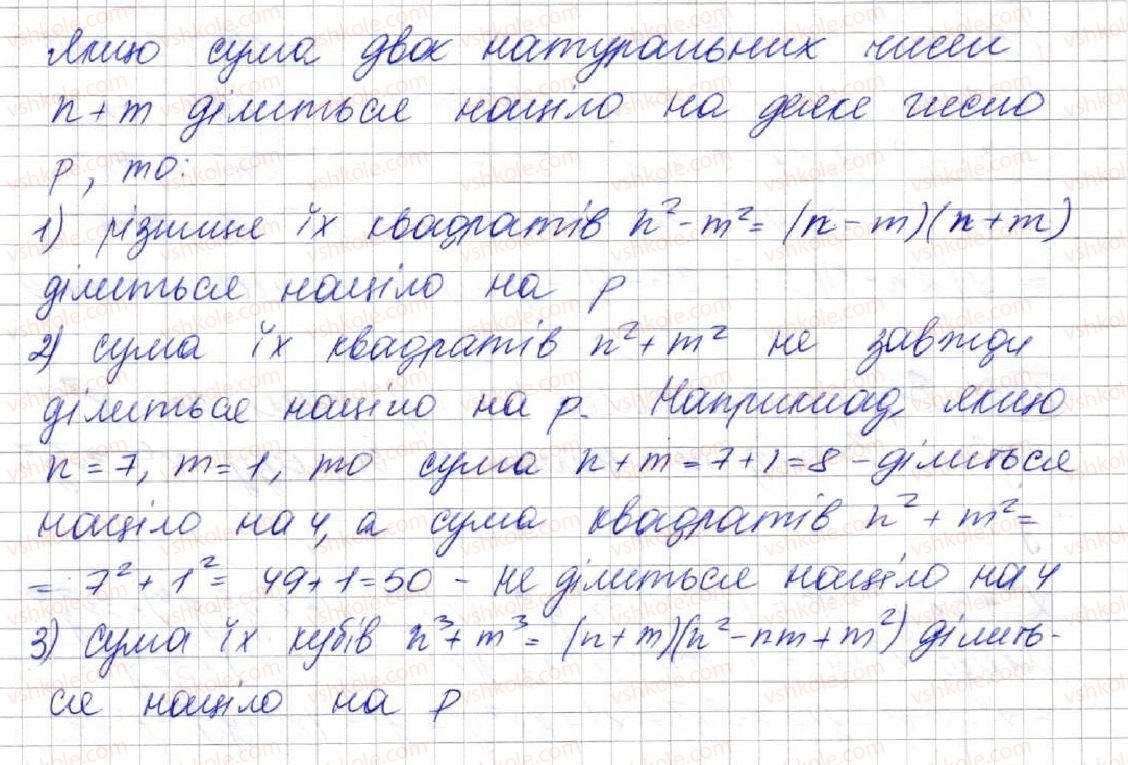 Якщо сума двох натуральних чисел
n + m ділиться націло на деяке число
p, то:
1) різниця їх квадратів n² - m² = (n - m)(n + m)
ділиться націло на p
2) сума їх квадратів n² + m² не завжди
ділиться націло на p. Наприклад, якщо
n = 7, m = 1, то сума n + m = 7 + 1 = 8 - ділиться
націло на 4, а сума квадратів n² + m² =
= 7² + 1² = 49 + 1 = 50 - не ділиться націло на 4
3) сума їх кубів n³ + m³ = (n + m)(n² - nm + m²) ділить-
ся націло на p